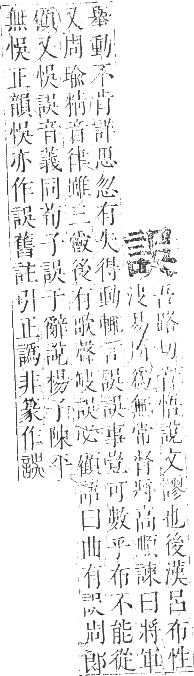 誤
吾路切音悟說文謬也後漢呂布性
決易所爲無常督將高順諫曰將軍
舉動不肯詳思忽有失得動輒言誤誤事豈可數乎布不能從
又周瑜精音律雖三爵後有歌聲缺誤必顧語曰曲有誤周郎
顧又悞誤音義同荀子誤于辭說楊子陳平
無悞正韻悞亦作誤舊註引正譌非篆作誤